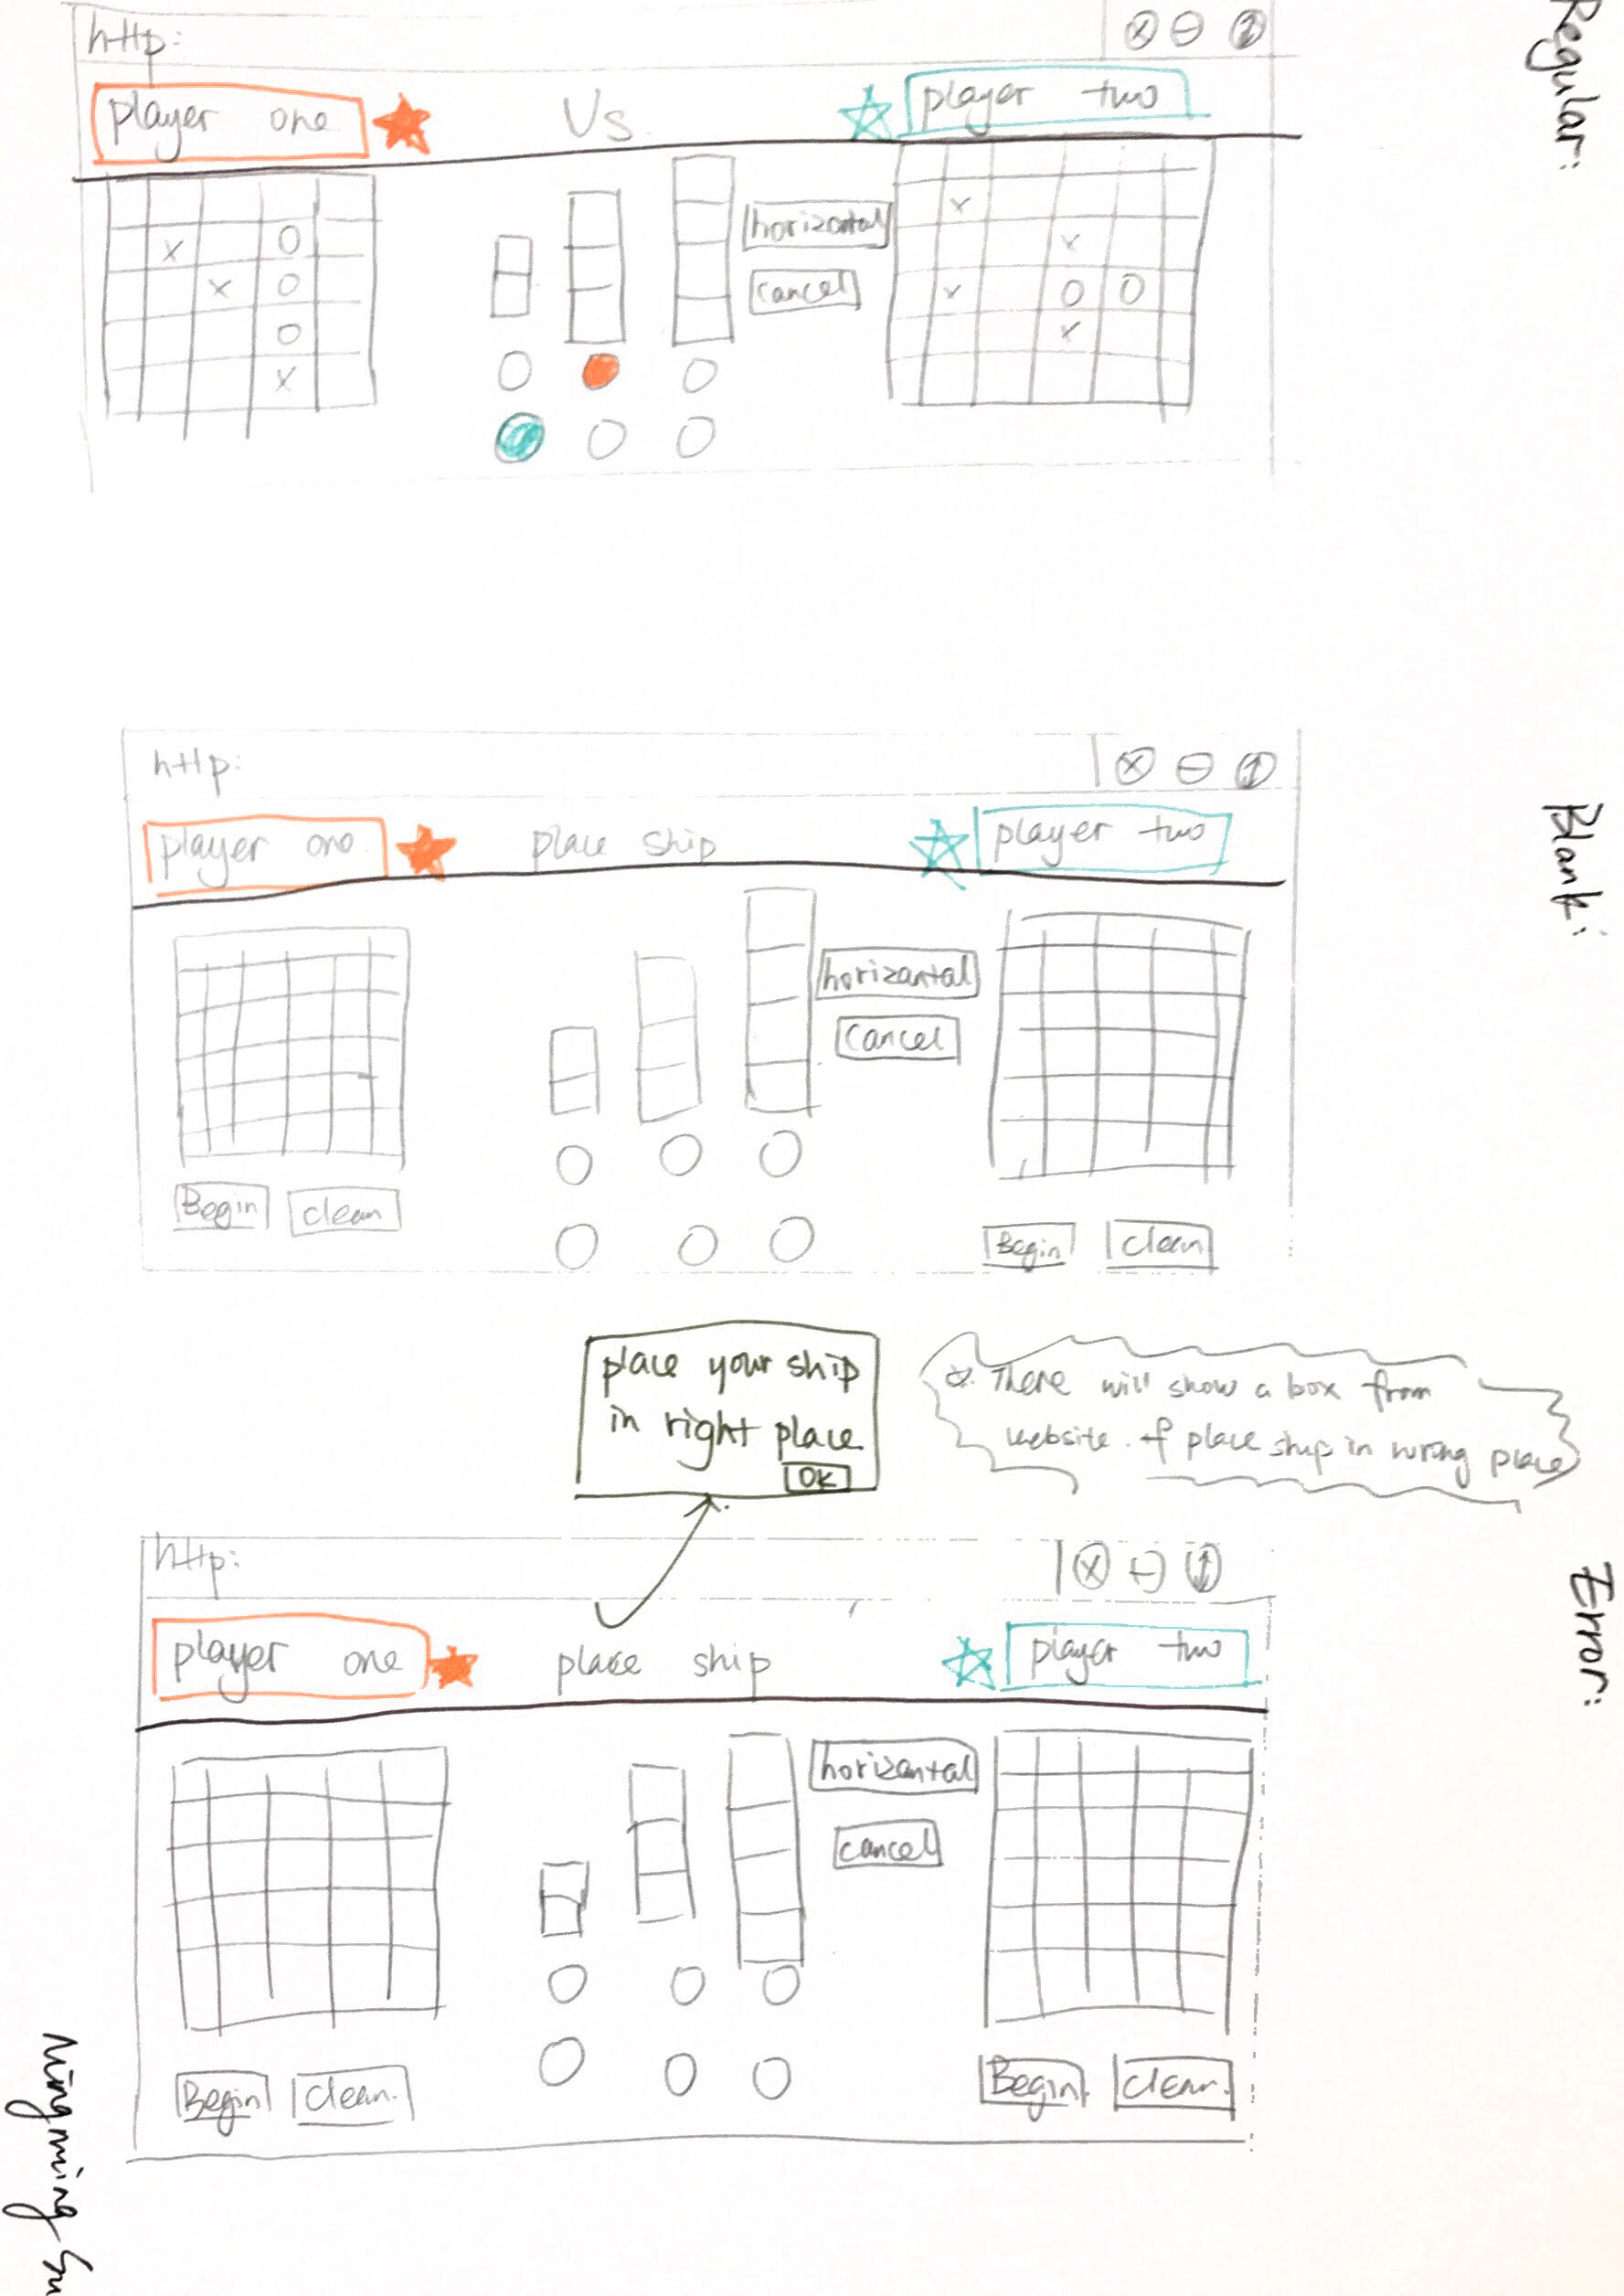 Regular:
http:
player one Vs. player two
horizontal
cancel
Blank:
http:
player one place ship player two
horizantal
Cancel
Begin clean Begin clean
place your ship
in right place
OK
There will show a box from
website. if place ship in wrong place
Error:
http:
player one place ship player two
horizantal
cancel
Begin clean. Begin clean.
Ningning